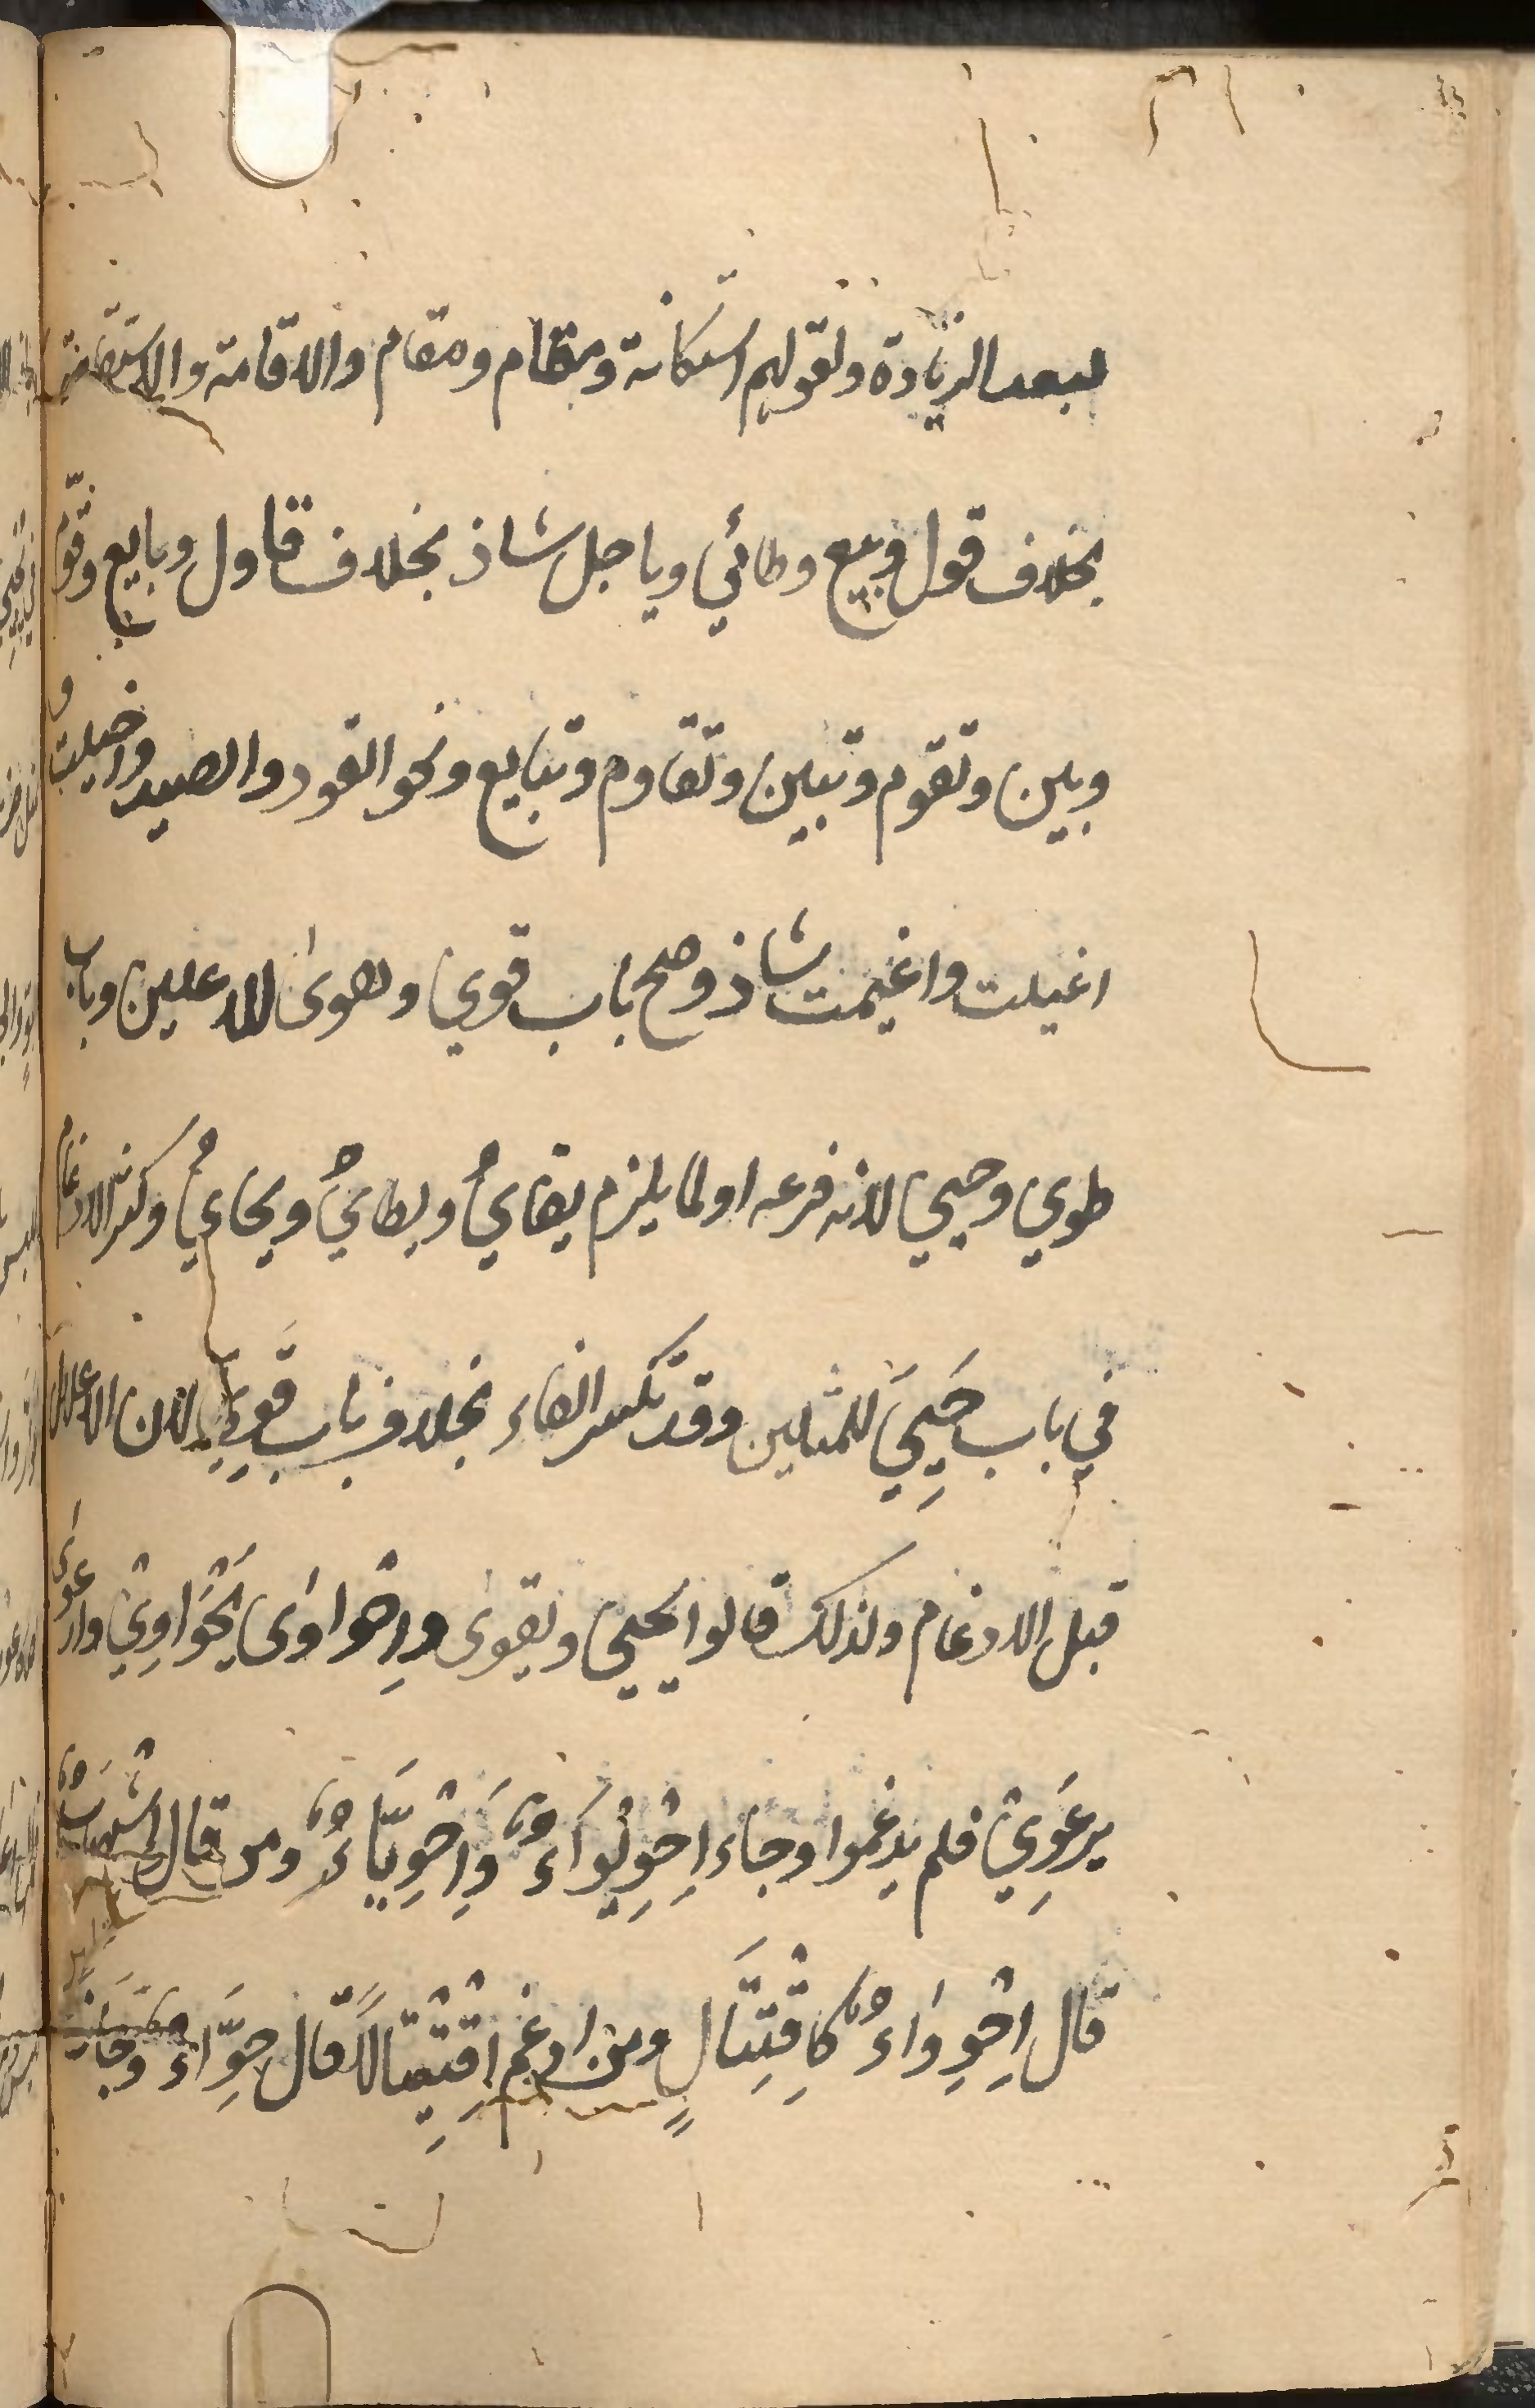 لبعد الزيادة ولقولهم استكانة ومقام ومقام والاقامة والاستقامة
بخلاف قول وبيع وطائي وياجل شاذ بخلاف قاول وبايع وقوّم
وبين وتقوم وتبين وتقاوم وتبايع ونحو القود والصيد واخيلت و
اغيلت واغيمت شاذ وصح باب قوي وهوى للاعلالين وباب
طوي وحيي لانه فرعه او لما يلزم يقايُ ويطايُ ويحايُ وكثر الادغام
في باب حَيِيَ للمثلين وقد تكسر الفاء بخلاف باب قَوِيَ لان الاعلال
قبل الادغام ولذلك قالوا يحيي ويقوى واِحْواوى يَحْوَاوِيْ وارعوى
يرعَوِيْ فلم يدغموا وجاء اِحْوِيْوَاءٌ وَاِحْوِيَّاءٌ ومن قال اشهباب
قال اِحْوِوَاءٌ كاِقْتِتَالٍ ومن ادغم اِقْتِتَالاً قال حِوَّاءٌ وجاز